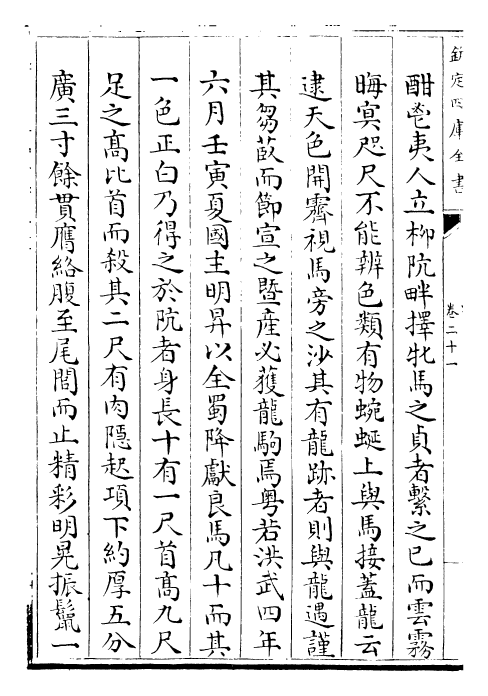 欽定四庫全書
卷二十一
酣鬯夷人立柳阬畔擇牝馬之貞者繫之已而雲霧
晦冥咫尺不能辨色類有物蜿蜒上與馬接蓋龍云
逮天色開霽視馬旁之沙其有龍跡者則與龍遇謹
其芻菽而節宣之暨産必獲龍駒焉粤若洪武四年
六月壬寅夏國主明昇以全蜀降獻良馬凡十而其
一色正白乃得之於阬者身長十有一尺首髙九尺
足之髙比首而殺其二尺有肉隱起項下約厚五分
廣三寸餘貫膺絡腹至尾閭而止精彩明晃振鬛一